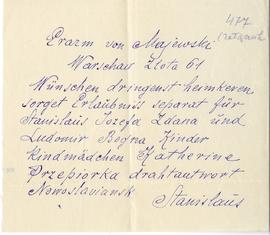 477
Erazm von Majewski
Warschau Zlota 61
Wünschen dringenst heimkeren
sorget Erlaubniss separat für
Stanislaus Jozefa Zdana und
Ludomir Bogna Kinder
Kindmädchen Katherine
Przepiorka drahtantwort
Nowoslaviansk
Stanislaus